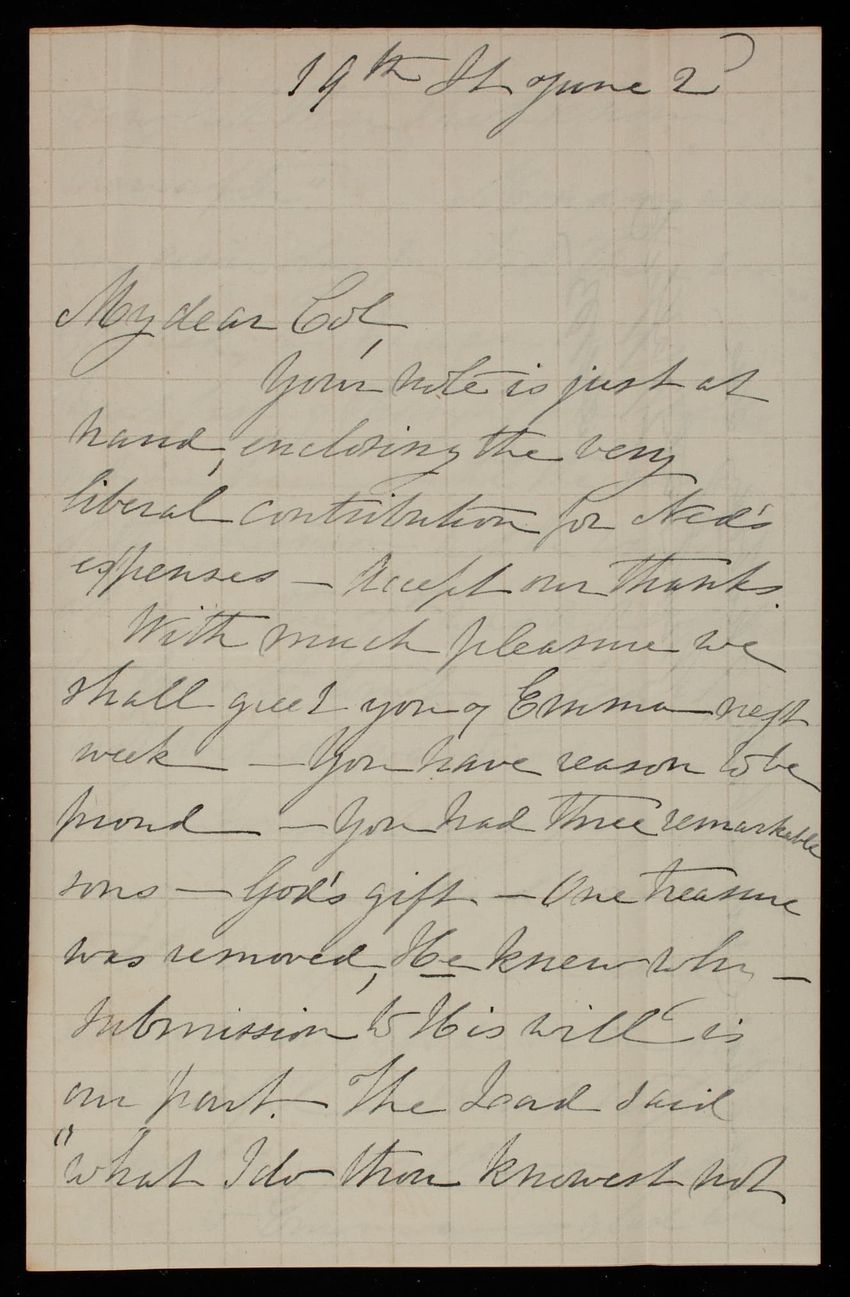 19th St June 2
My dear Col,
Your note is just at
hand, enclosing the very
liberal contribution for Ned's
expenses — Accept our thanks.
With much pleasure we
shall greet you & Emma next
week — You have reason to be
proud — You had three remarkable
sons — God's gift — One treasure
was removed, He knew why —
Submission to His will is
our part. The Lord said
"What I do thou knowest not